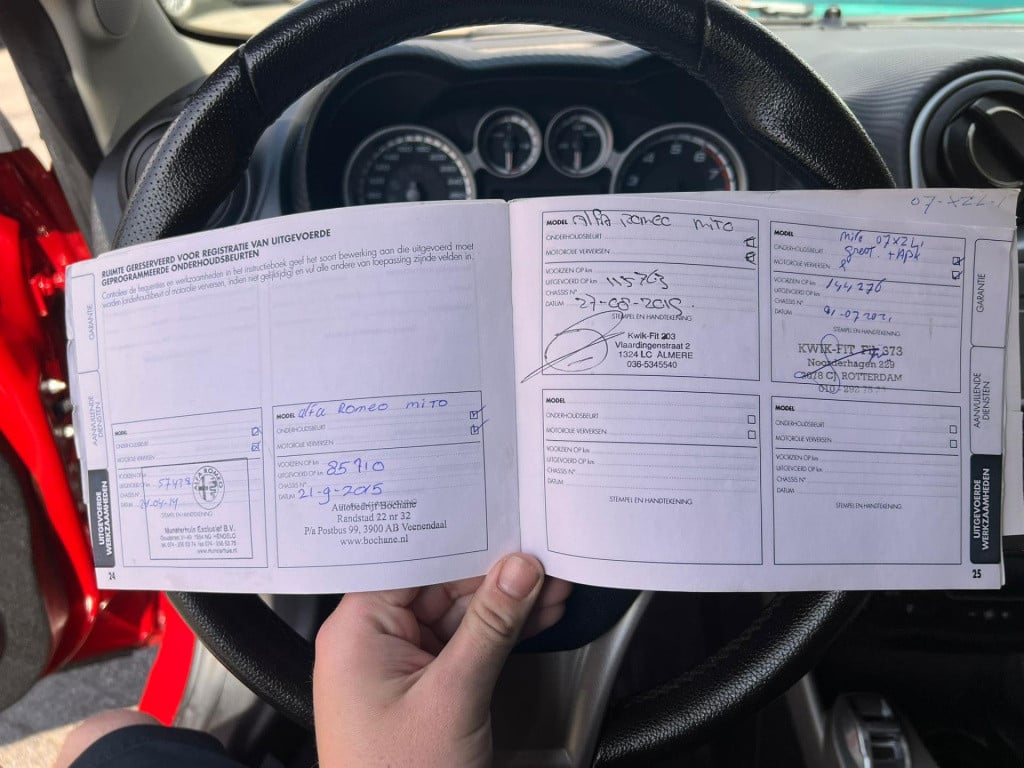 RUIMTE GERESERVEERD VOOR REGISTRATIE VAN UITGEVOERDE
GEPROGRAMMEERDE ONDERHOUDSBEURTEN
Controleer de frequenties en werkzaamheden in het instructieboek geef het soort bewerking aan die uitgevoerd moet
worden (onderhoudsbeurt of motorolie verversen, indien niet gelijktijdig) en vul alle andere van toepassing zijnde velden in.
GARANTIE
AANVULLENDE
DIENSTEN
UITGEVOERDE
WERKZAAMHEDEN
MODEL
ONDERHOUDSBEURT
MOTOROLIE VERVERSEN
VOORZIEN OP km
UITGEVOERD OP km 57478
CHASSIS N°
DATUM
STEMPEL EN HANDTEKENING
Munsterhuis Exclusief B.V.
24
MODEL alfa Romeo MiTO
ONDERHOUDSBEURT
MOTOROLIE VERVERSEN
VOORZIEN OP km
UITGEVOERD OP km 85710
CHASSIS N°
DATUM 21-9-2015
Autobedrijf Bochane
Randstad 22 nr 32
P/a Postbus 99, 3900 AB Veenendaal
www.bochane.nl
07-XZL-1
MODEL Alfa Romeo MITO
ONDERHOUDSBEURT
MOTOROLIE VERVERSEN
VOORZIEN OP km
UITGEVOERD OP km 115763
CHASSIS N°
DATUM 27-08-2018
STEMPEL EN HANDTEKENING
Kwik-Fit 203
Vlaardingenstraat 2
1324 LC ALMERE
036-5345540
MODEL mito 07XZL1
ONDERHOUDSBEURT groot + Apk
MOTOROLIE VERVERSEN
VOORZIEN OP km
UITGEVOERD OP km 144276
CHASSIS N°
DATUM 01-07-2021
STEMPEL EN HANDTEKENING
KWIK-FIT 373
Noorderhagen 229
3078 CJ ROTTERDAM
010 292
MODEL
ONDERHOUDSBEURT
MOTOROLIE VERVERSEN
VOORZIEN OP km
UITGEVOERD OP km
CHASSIS N°
DATUM
STEMPEL EN HANDTEKENING
MODEL
ONDERHOUDSBEURT
MOTOROLIE VERVERSEN
VOORZIEN OP km
UITGEVOERD OP km
CHASSIS N°
DATUM
STEMPEL EN HANDTEKENING
GARANTIE
AANVULLENDE
DIENSTEN
UITGEVOERDE
WERKZAAMHEDEN
25
4 5 6 7